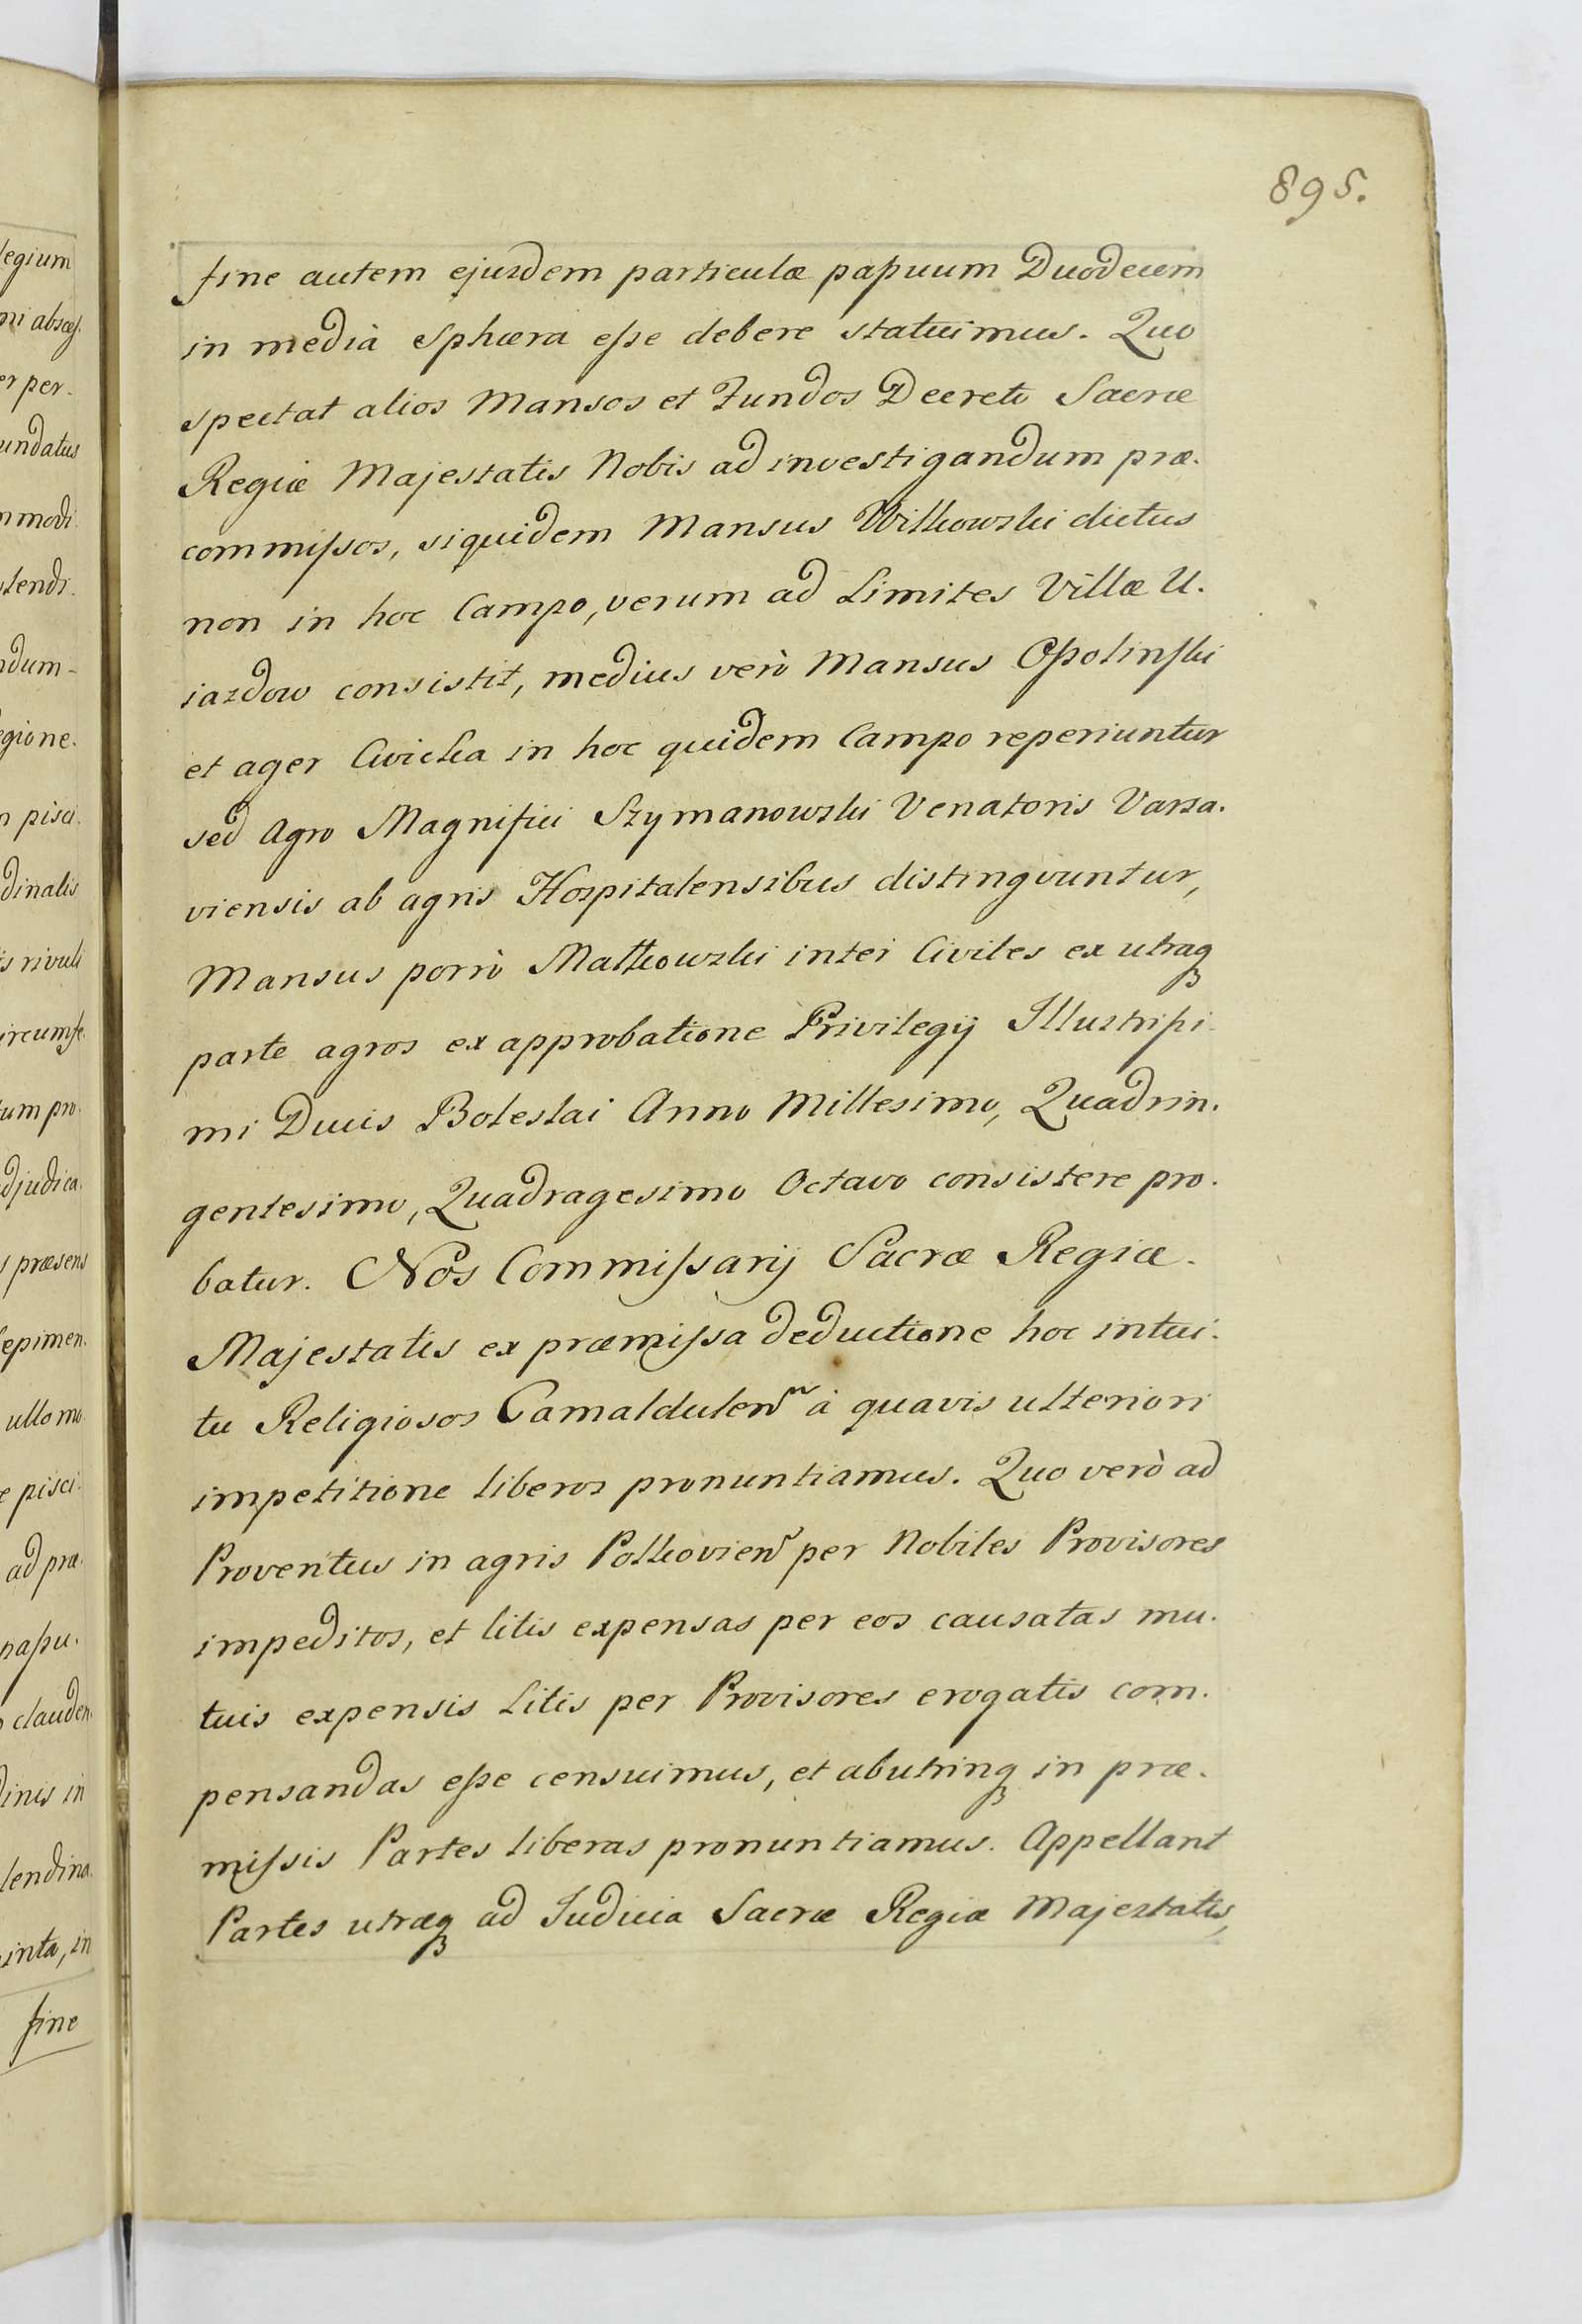 895.
fine autem ejusdem particulæ paſsuum Duodecem
in mediâ Sphæra eſse debere statuimus. Quo
spectat alios Mansos et Fundos Decreto Sacræ
Regiæ Majestatis Nobis ad investigandum præ-
commiſsos, siquidem Mansus Witkowski dictus
non in hoc Campo, verum ad Limites Villæ U-
iazdow consistit, medius verò Mansus Opolinſki
et ager Cwicka in hoc quidem Campo reperiuntur
sed Agro Magnifici Szymanowski Venatoris Varsa-
viensis ab agris Hospitalensibus distingvuntur,
Mansus porrò Matkowski inter Civiles ex utraq
parte agros ex approbatione Privilegij Illustriſsi-
mi Ducis Boleslai Anno Millesimo, Quadrin-
gentesimo, Quadragesimo Octavo consistere pro-
batur. Nos Commiſsarij Sacræ Regiæ
Majestatis ex præmiſsa deductione hoc intui-
tu Religiosos Camaldulen̄ à quavis ulteriori
impetitione liberos pronuntiamus. Quo verò ad
Proventus in agris Polkovien̄ per Nobiles Provisores
impeditos, et litis expensas per eos causatas mu-
tuis expensis Litis per Provisores erogatis com-
pensandas eſse censuimus, et abutrinq in præ-
miſsis Partes liberas pronuntiamus. Appellant
Partes utræq ad Judicia Sacræ Regiæ Majestatis,